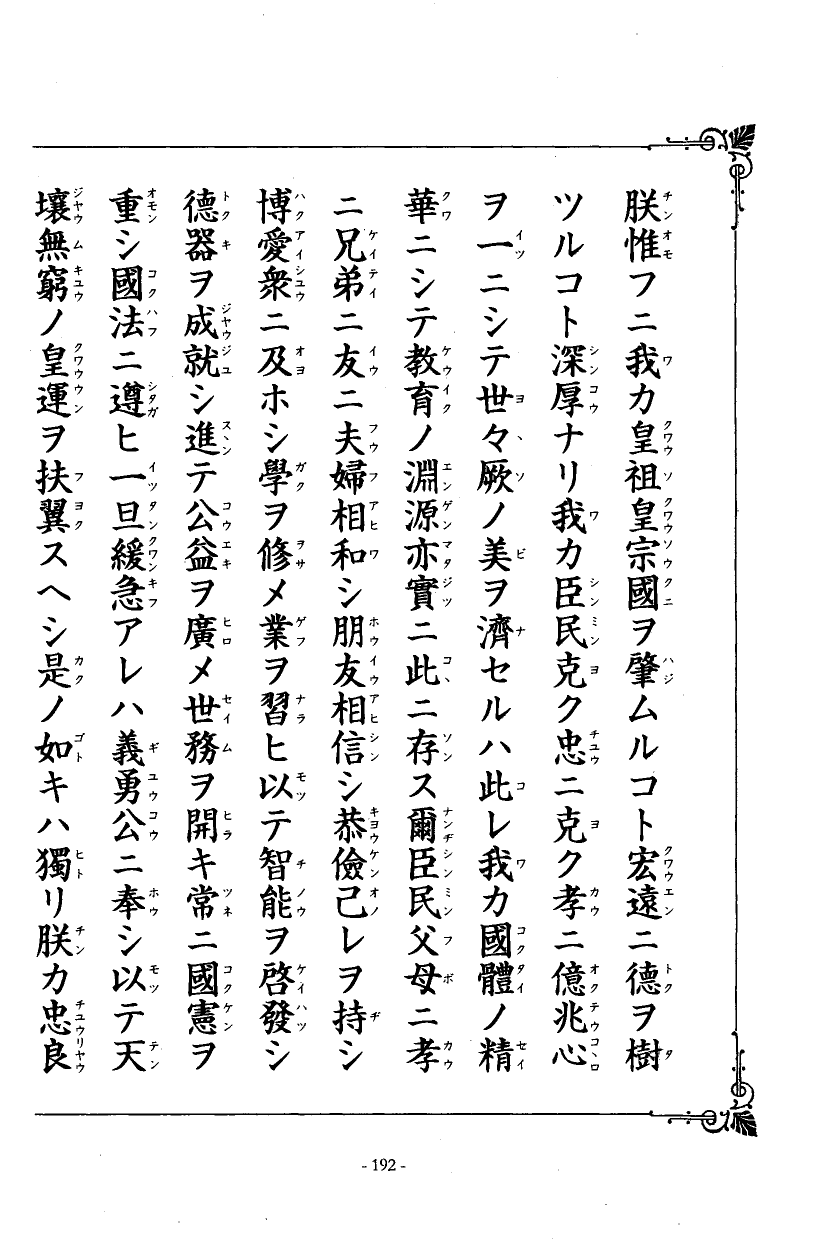 朕惟フニ我カ皇祖皇宗國ヲ肇ムルコト宏遠ニ德ヲ樹
ツルコト深厚ナリ我カ臣民克ク忠ニ克ク孝ニ億兆心
ヲ一ニシテ世々厥ノ美ヲ濟セルハ此レ我カ國體ノ精
華ニシテ教育ノ淵源亦實ニ此ニ存ス爾臣民父母ニ孝
ニ兄弟ニ友ニ夫婦相和シ朋友相信シ恭儉己レヲ持シ
博愛衆ニ及ホシ學ヲ修メ業ヲ習ヒ以テ智能ヲ啓發シ
德器ヲ成就シ進テ公益ヲ廣メ世務ヲ開キ常ニ國憲ヲ
重シ國法ニ遵ヒ一旦緩急アレハ義勇公ニ奉シ以テ天
壤無窮ノ皇運ヲ扶翼スヘシ是ノ如キハ獨リ朕カ忠良
- 192 -